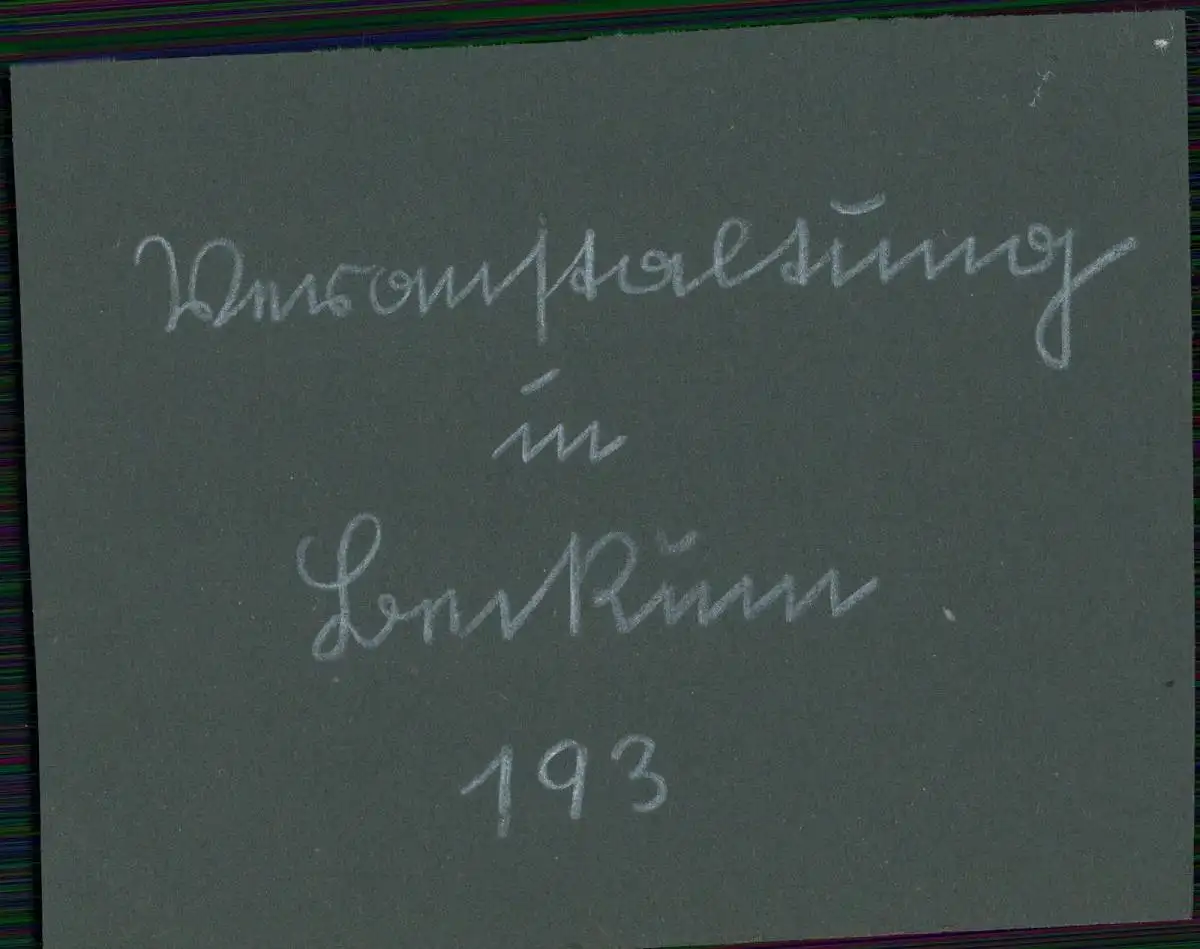 Veranstaltung
in
Beckum
193